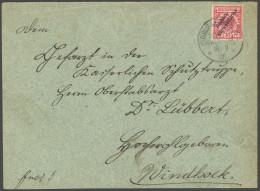 Dem
Chefarzt in der
Kaiserlichen Schutztruppe,
Herrn Oberstabsarzt
Dr. Lübbert,
Hochwohlgeboren
Windhoek.